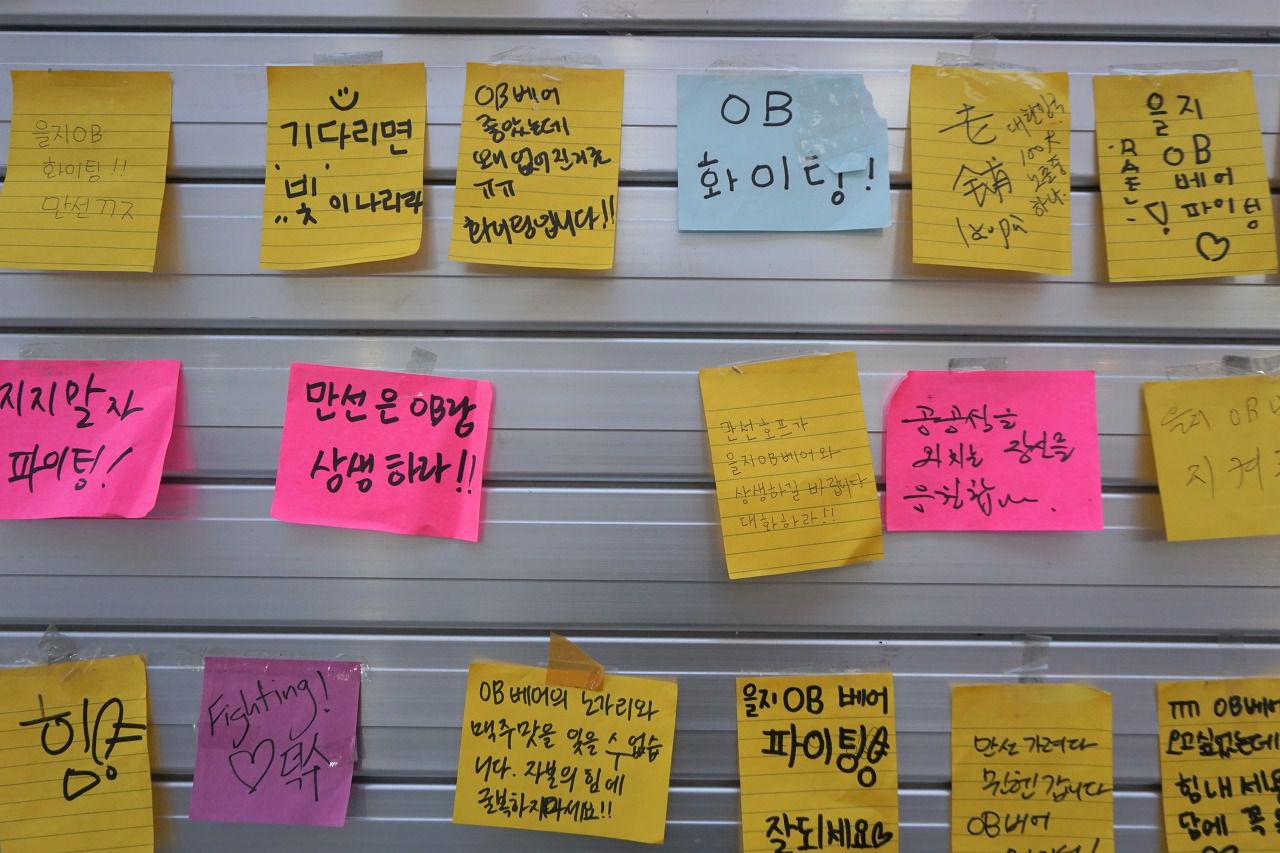 을지OB
화이팅!!
만선 꺼져
기다리면
빛이 나리라
OB베어
좋았는데
왜 없어진거죠
ㅠㅠ
화이팅입니다!!
OB
화이팅!
老
鋪
lǎopù
대한민국
100大
노포중
하나.
을지
OB
베어
파이팅
지지말자
파이팅!
만선은 OB랑
상생하라!!
만선호프가
을지OB베어와
상생하길 바랍니다
대화하라!!
을지 OB
지켜
힘
Fighting!
OB 베어의 노가리와
맥주맛을 잊을 수 없습
니다. 자본의 힘에
굴복하지마세요!!
을지 OB 베어
파이팅
잘되세요
만선 가려다
OB베어
ㅠㅠ OB베어
오고싶었는데
힘내세요
담에 꼭